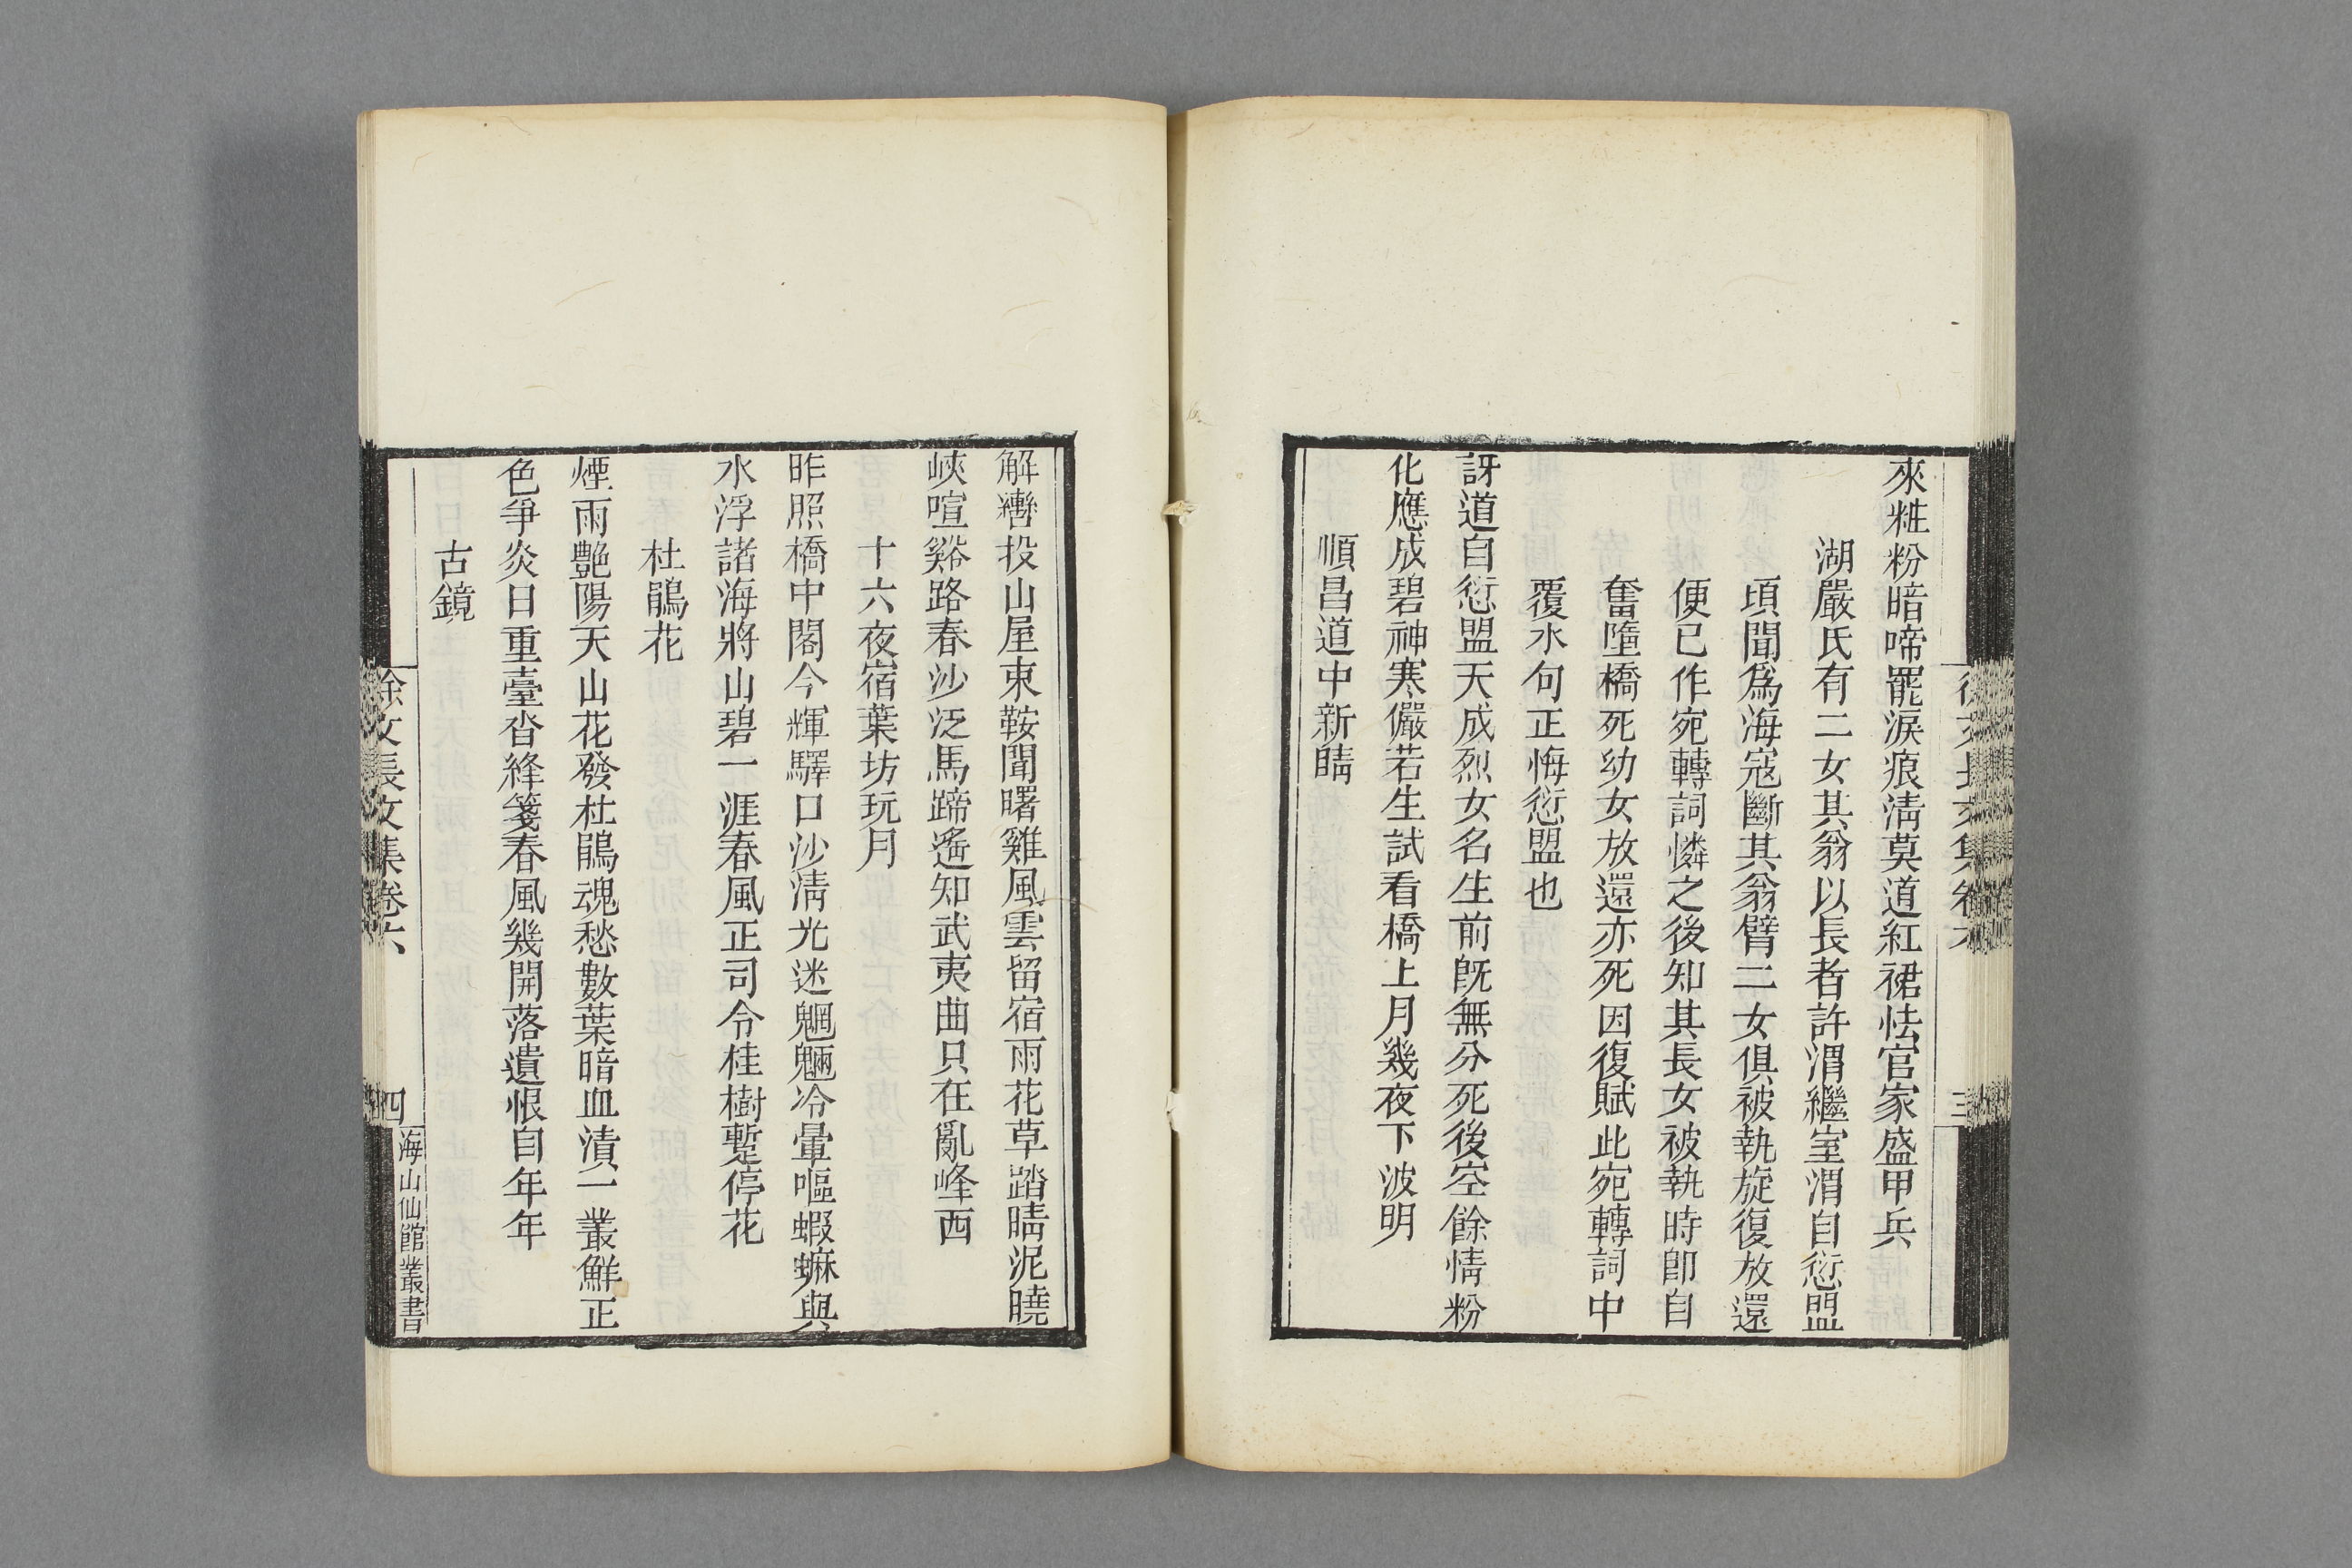 來粧粉暗啼罷淚痕淸莫道紅裙怯官家盛甲兵
湖嚴氏有二女其翁以長者許渭繼室渭自愆盟
頃聞爲海寇斷其翁臂二女俱被執旋復放還
便已作宛轉詞憐之後知其長女被執時卽自
奮墮橋死幼女放還亦死因復賦此宛轉詞中
覆水句正悔愆盟也
訝道自愆盟天成烈女名生前旣無分死後空餘情粉
化應成碧神寒儼若生試看橋上月幾夜下波明
順昌道中新晴
徐文長文集卷六
三
解轡投山屋束鞍聞曙雞風雲留宿雨花草踏晴泥曉
峽喧谿路春沙泛馬蹄遙知武夷曲只在亂峰西
十六夜宿葉坊玩月
昨照橋中閣今輝驛口沙淸光迷魍魎冷暈嘔蝦蟆與
水浮諸海將山碧一涯春風正司令桂樹暫停花
杜鵑花
煙雨艷陽天山花發杜鵑魂愁數葉暗血漬一叢鮮正
色爭炎日重臺沓絳箋春風幾開落遺恨自年年
古鏡
徐文長文集卷六
四
海山仙館叢書